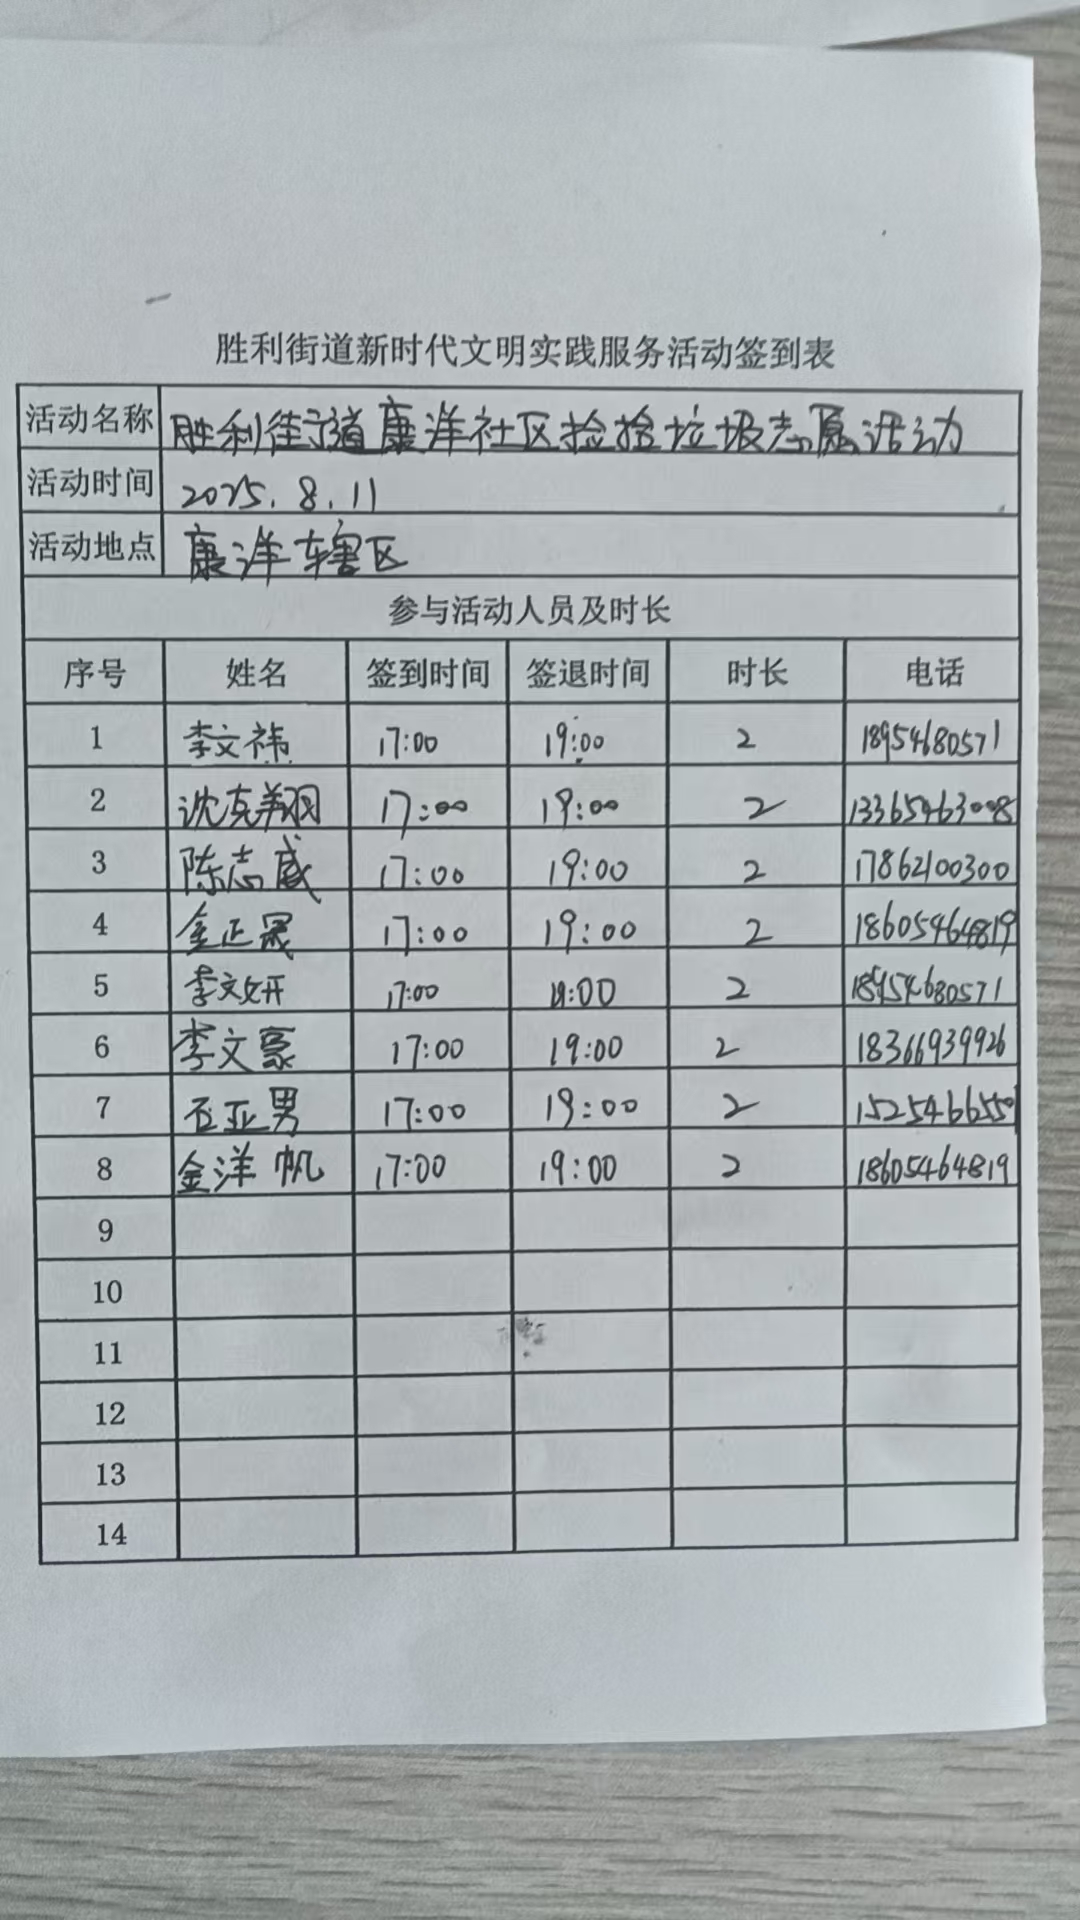 胜利街道新时代文明实践服务活动签到表
活动名称 胜利街道康洋社区捡拾垃圾志愿活动
活动时间 2025.8.11
活动地点 康洋辖区
参与活动人员及时长
序号 姓名 签到时间 签退时间 时长 电话
1 李文祎 17:00 19:00 2 18954680571
2 沈克翔 17:00 19:00 2 13365463008
3 陈志威 17:00 19:00 2 17862100300
4 金正晟 17:00 19:00 2 18605464819
5 李文妍 17:00 19:00 2 18954680571
6 李文豪 17:00 19:00 2 18366939926
7 石亚男 17:00 19:00 2 1525466550
8 金洋帆 17:00 19:00 2 18605464819
9
10
11
12
13
14